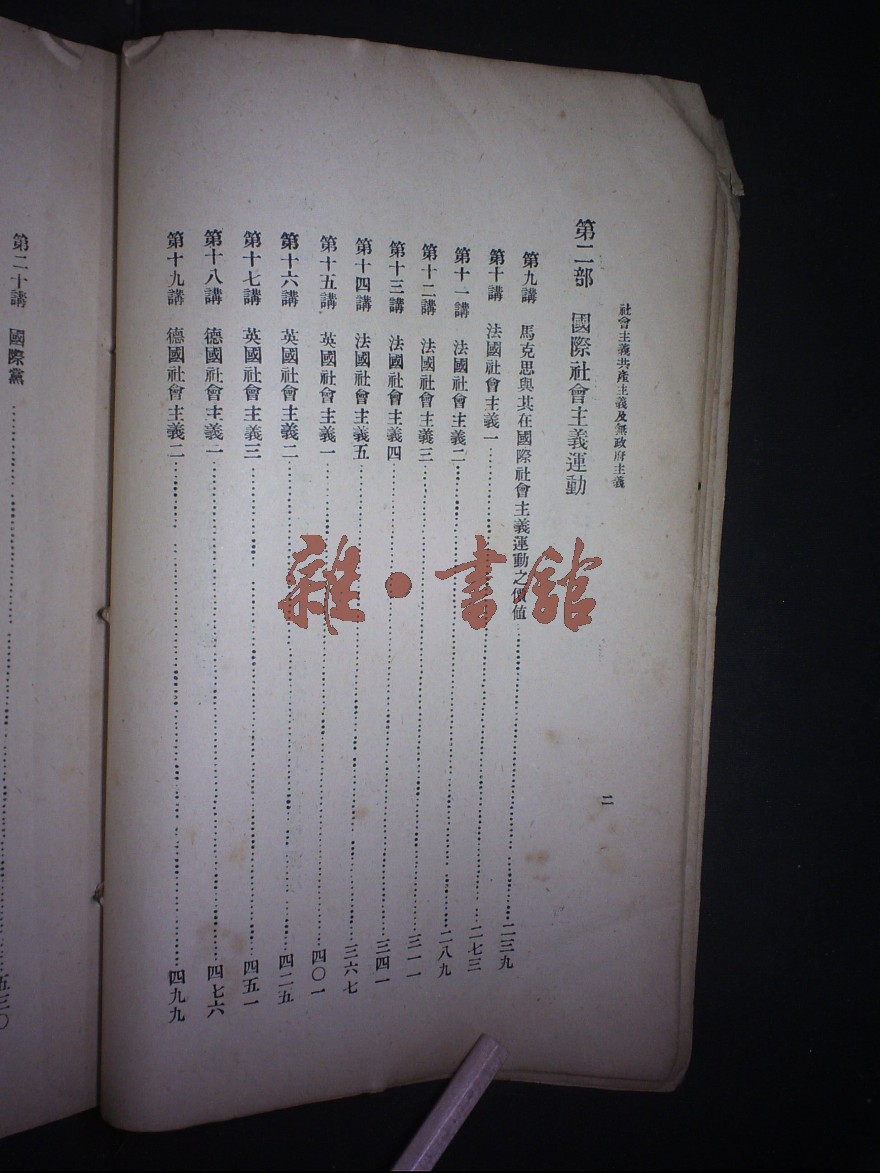 社會主義共產主義及無政府主義
二
第二部 國際社會主義運動
第九講 馬克思與其在國際社會主義運動之價值…………二三九
第十講 法國社會主義一…………二七三
第十一講 法國社會主義二…………二八九
第十二講 法國社會主義三…………三一一
第十三講 法國社會主義四…………三四一
第十四講 法國社會主義五…………三六七
第十五講 英國社會主義一…………四〇一
第十六講 英國社會主義二…………四二五
第十七講 英國社會主義三…………四五一
第十八講 德國社會主義一…………四七六
第十九講 德國社會主義二…………四九九
第二十講 國際黨…………五三〇
雜·書館